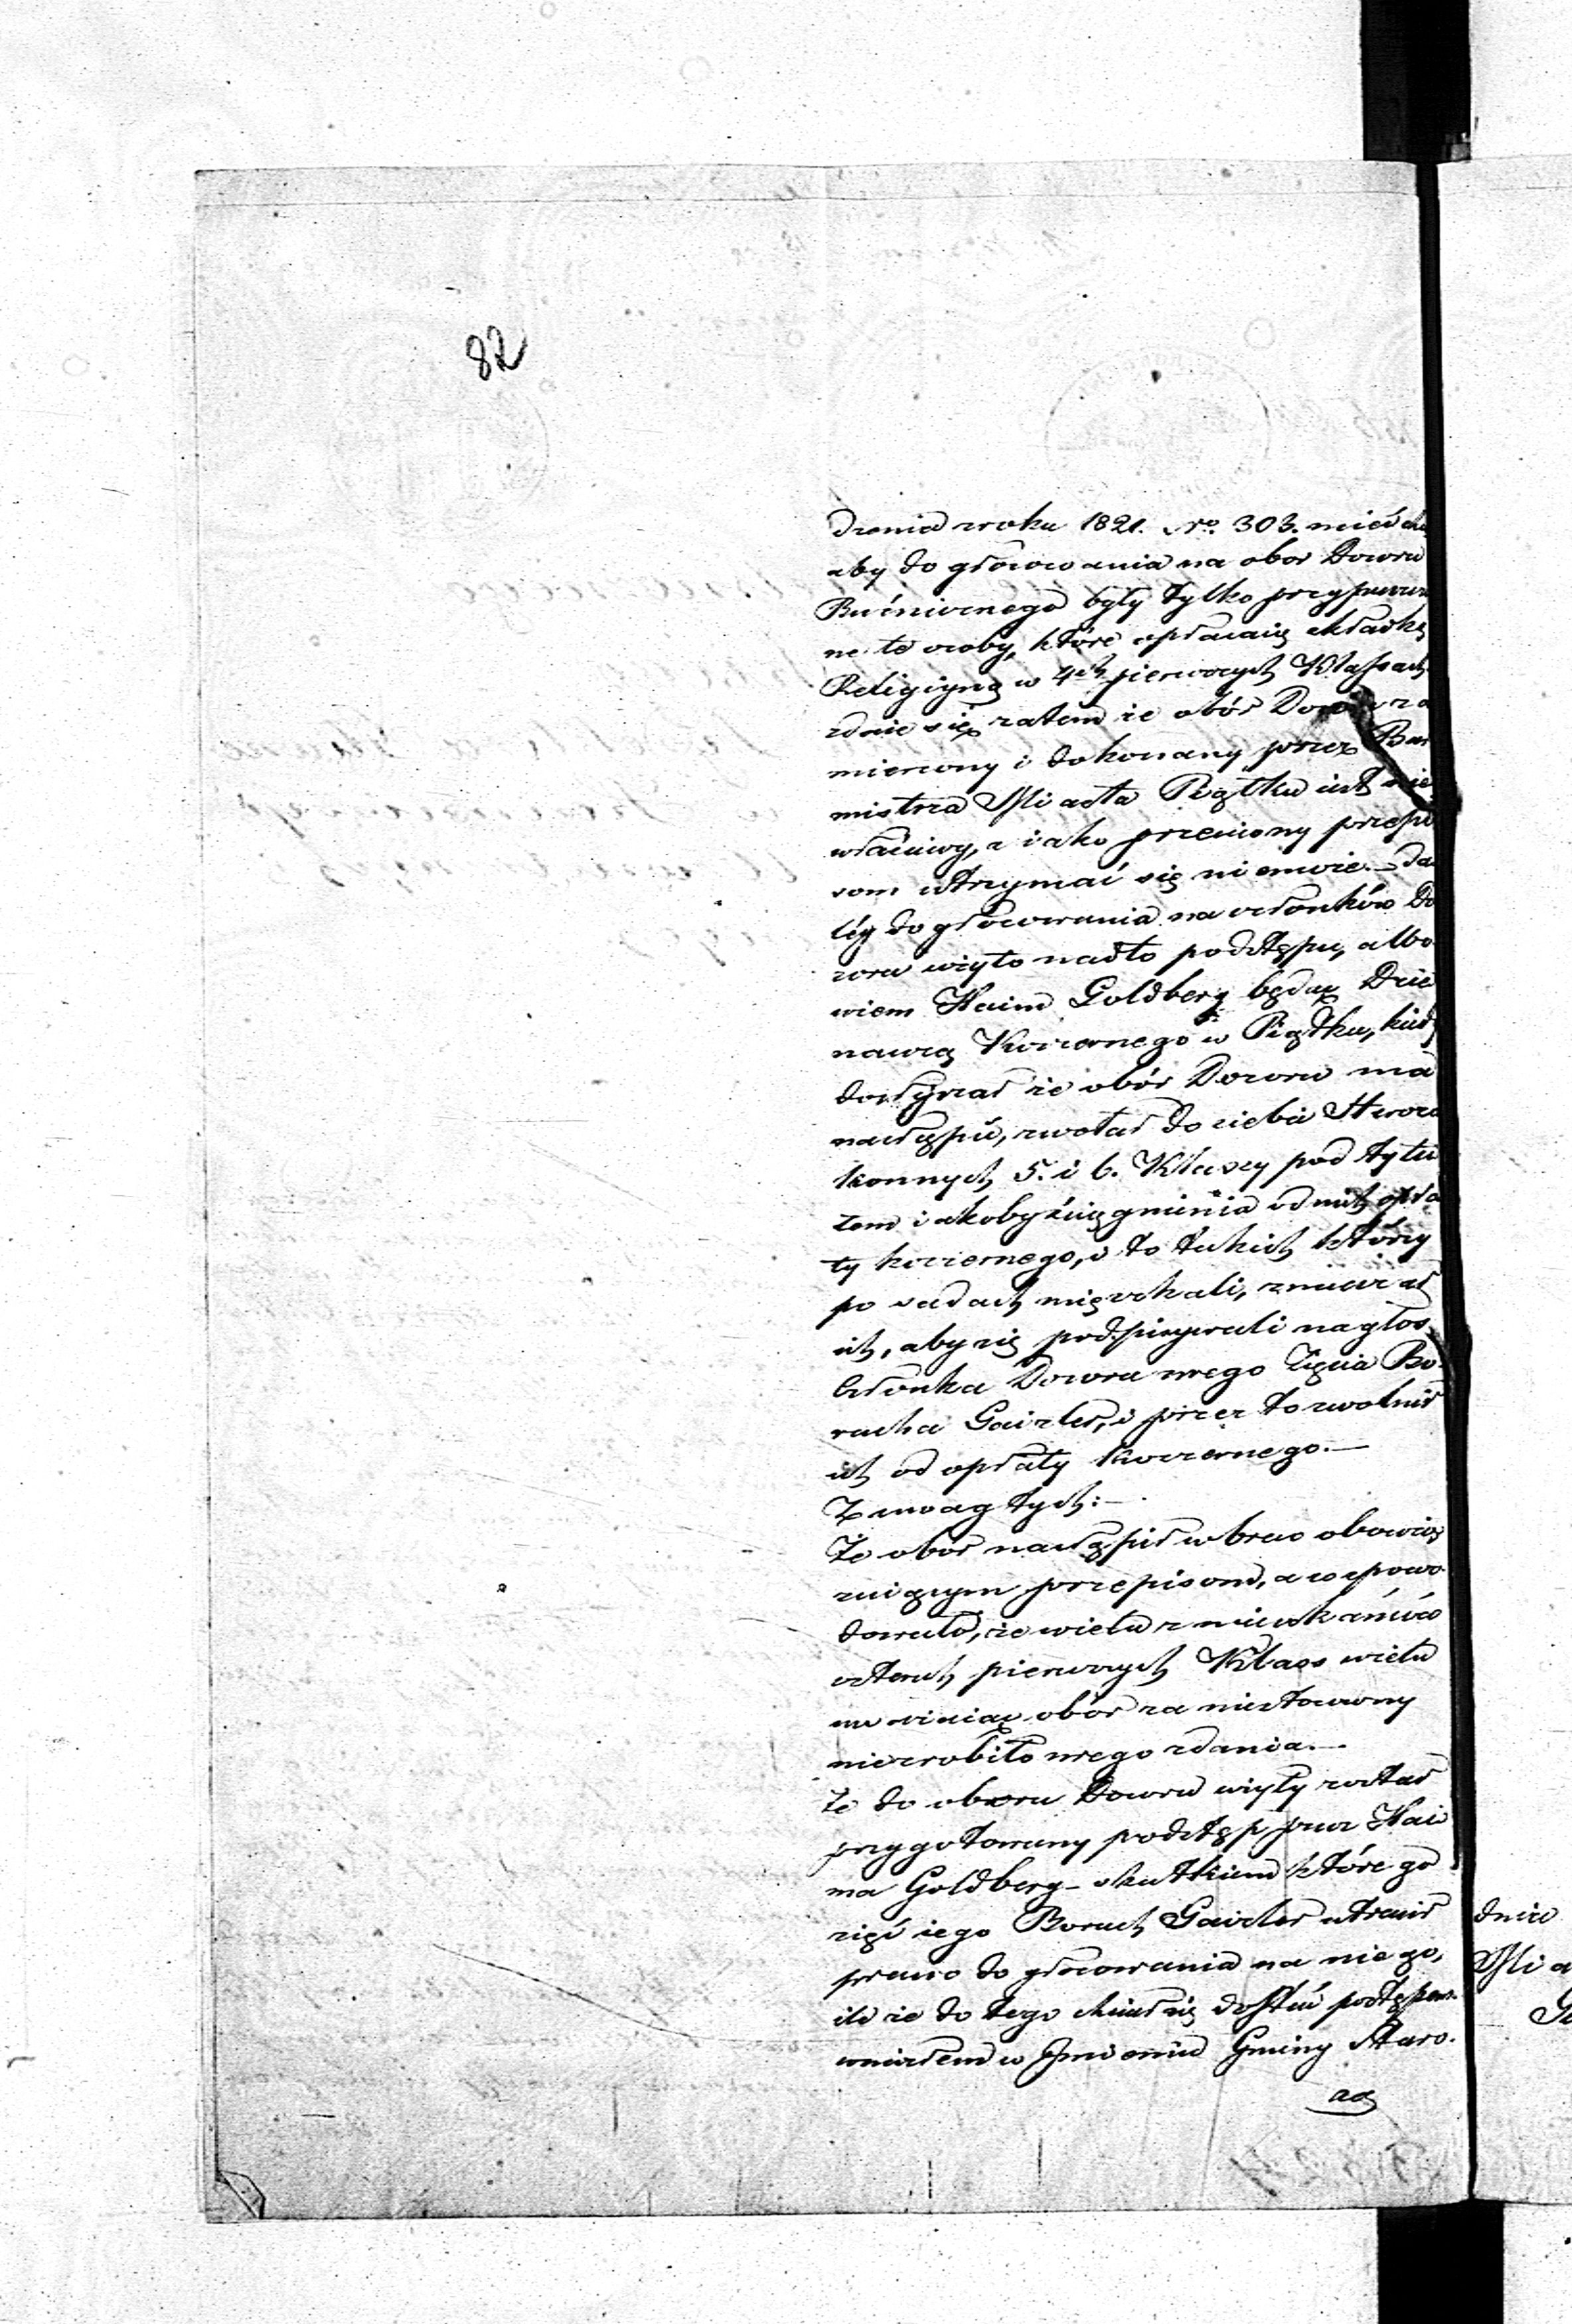 82
dzenia z roku 1821. No. 303. mieć chce
aby do głosowania na obor Dozoru
Buźnicznego były tylko przypuszczo
ne te osoby, które opłacaią składkę
Religiyną w 4ch pierwszych Klassach
zdaie się zatem że obór Dozoru za
mierzony i dokonany przez Bur
mistrza Miasta Piątku iest nie
właściwy, a iako przeciwny przepi
som utrzymać się niemoże. – Da
léy do głosowania na członków Do
zoru użyto nadto podstępu, albo
wiem Haim Goldberg będąc Dzier
żawcą Koszernego w Piątku, kiedy
dosłyszał że obór Dozoru ma
nastąpić, zwołał do siebie Staroza
konnych 5. i 6. Klassy pod tytu
łem iakoby ściągnienia od nich opła
ty koszernego, i to takich którzy
po sadach mięszkali, zmuszał
ich, aby się podpisywali na głos
Członka Dozoru swego Zięcia Bo
rucha Gaizler, i przez to zwolnił
ich od opłaty koszernego. —
Z uwag tych: —
Że obór nastąpił wbrew obowią
zuiącym przepisom, a co spowo
dowało, że wielu z mieszkańców
czterech pierwszych Klass wielu
uważaiąc obór za niestosowny
niezrobiło swego zdania. —
Że do oboru Dozoru użyty został
przygotowany podstęp przez Hai
ma Goldberg – skutkiem którego
zięć iego Boruch Gaizler utracił
prawo do głosowania na niego,
ile że do tego chciał się dostać podstępem.
wniosłem w Imieniu Gminy Staro.
za
dnia
Mia